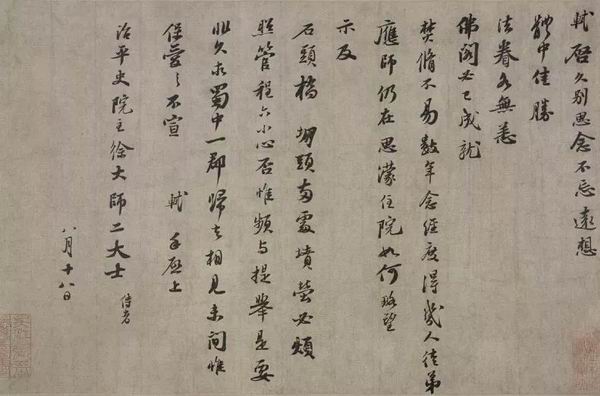 軾啟久別思念不忘遠想
體中佳勝
法眷各無恙
佛閣必已成就
焚脩不易數年念經度得幾人徒弟
應師仍在思濛住院如何略望
示及
石頭橋堋頭兩處墳塋必煩
照管程六小心否惟頻与提舉是要
非久求蜀中一郡歸去相見未間惟
保愛之不宣 軾手啟上
治平史院主徐大師二大士 侍者
八月十八日